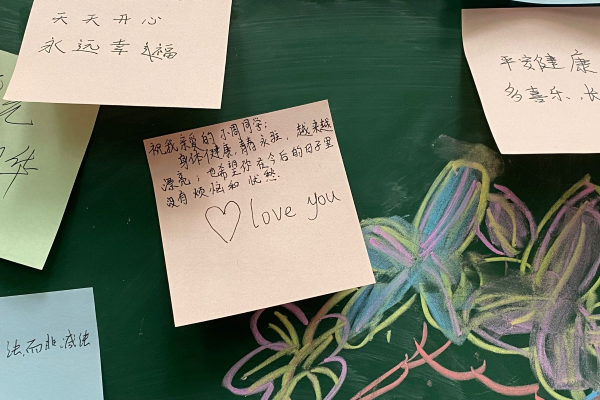 天天开心
永远幸福
平安健康
多喜乐、长
祝我亲爱的小周同学:
身体健康,青春永驻,越来越
漂亮,也希望你在今后的日子里
没有烦恼和忧愁.
♡ love you
法,而非.减法